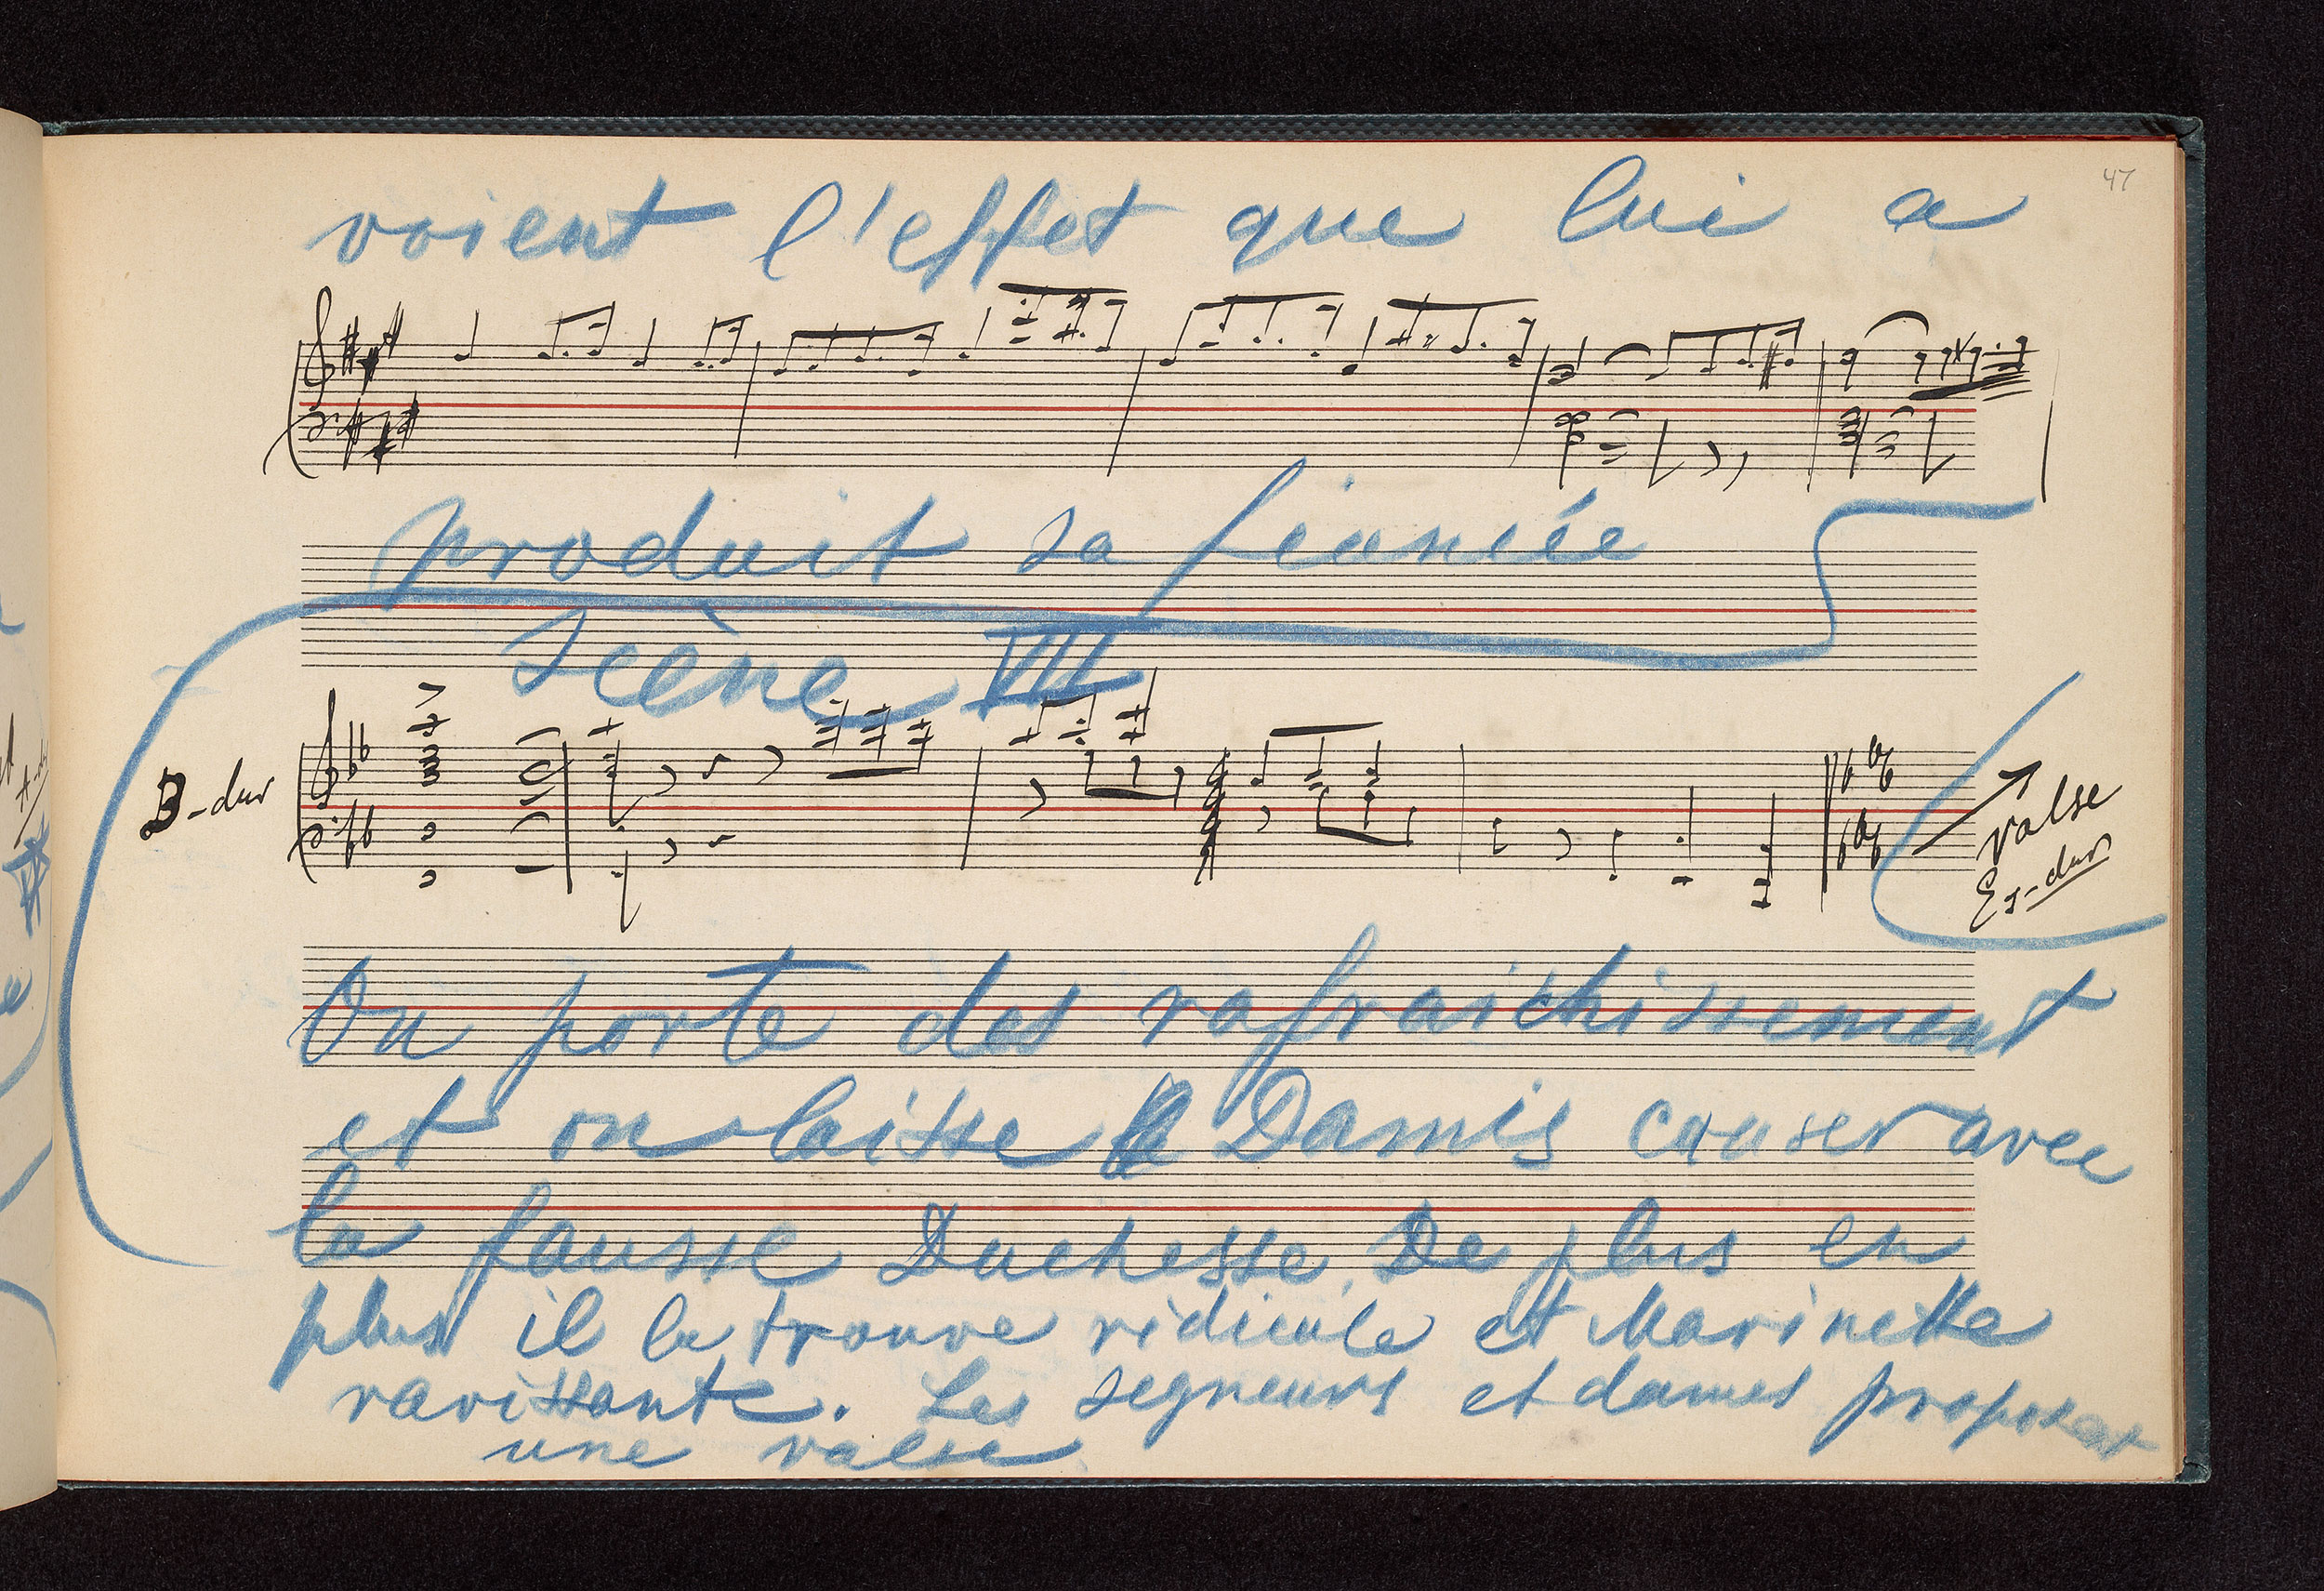 47
voient l'effet que lui a
produit sa fiancée
Scène VII
B-dur
valse
Es-dur
On porte des rafraichissement
et on laisse Damis causer avec
la fausse Duchesse. De plus en
plus il la trouve ridicule et Marinette
ravissante. Les segneurs et dames proposent
une valse